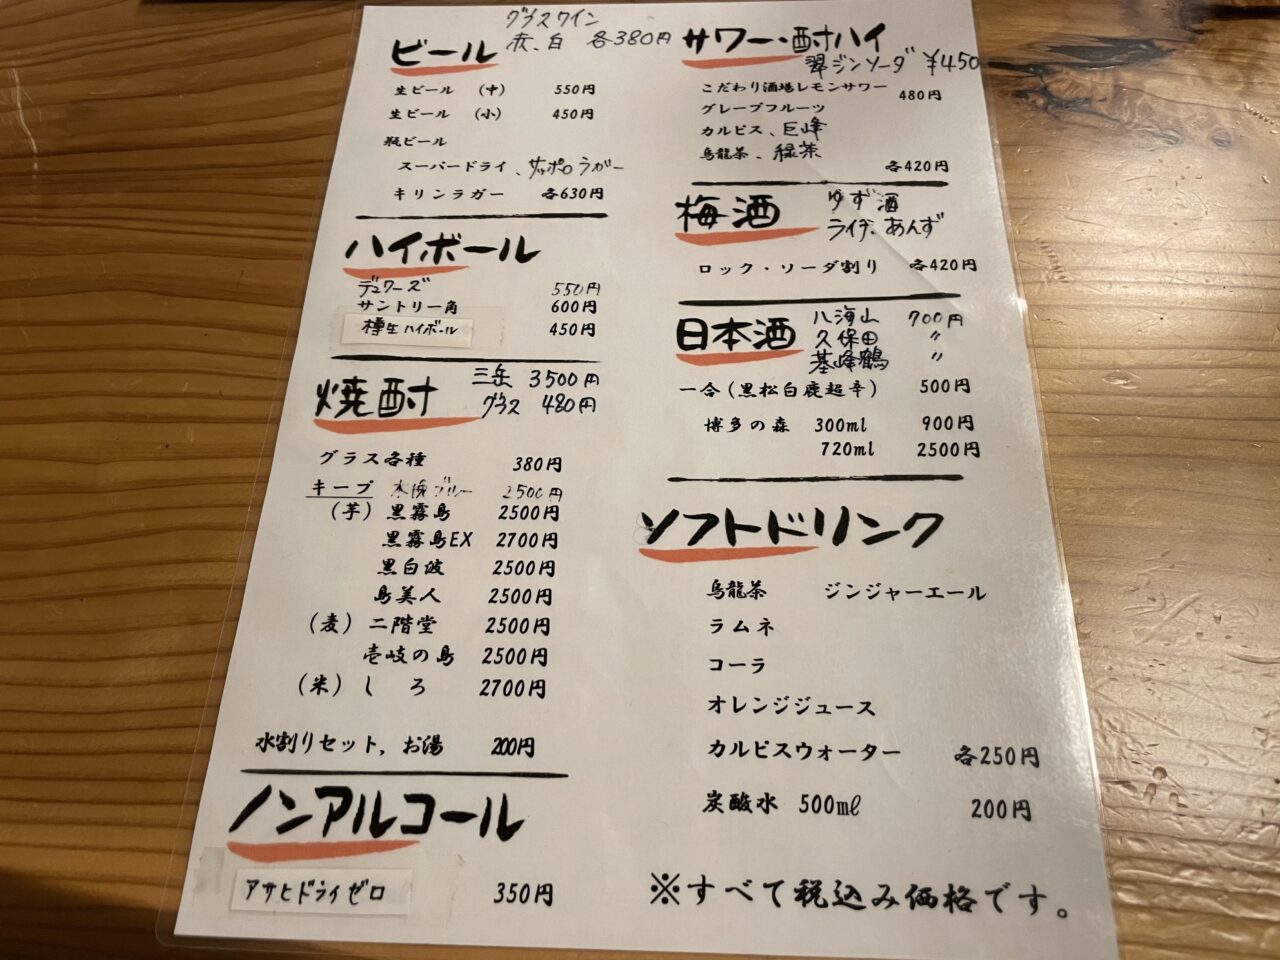 グラスワイン
赤、白 各380円
ビール
生ビール (中) 550円
生ビール (小) 450円
瓶ビール
スーパードライ、サッポロラガー
キリンラガー 各630円
ハイボール
デュワーズ 550円
サントリー角 600円
樽生ハイボール 450円
焼酎
三岳 3500円
グラス 480円
グラス各種 380円
キープ ブルー 2500円
(芋) 黒霧島 2500円
黒霧島EX 2700円
黒白波 2500円
島美人 2500円
(麦) 二階堂 2500円
壱岐の島 2500円
(米) しろ 2700円
水割りセット, お湯 200円
ノンアルコール
アサヒドライゼロ 350円
サワー・酎ハイ
翠ジンソーダ ¥450
こだわり酒場レモンサワー 480円
グレープフルーツ
カルピス、巨峰
烏龍茶、緑茶
各420円
梅酒
ゆず酒
ライチ、あんず
ロック・ソーダ割り 各420円
日本酒
八海山 700円
久保田 〃
基峰鶴 〃
一合(黒松白鹿超辛) 500円
博多の森 300ml 900円
720ml 2500円
ソフトドリンク
烏龍茶 ジンジャーエール
ラムネ
コーラ
オレンジジュース
カルピスウォーター 各250円
炭酸水 500ml 200円
※すべて税込み価格です。